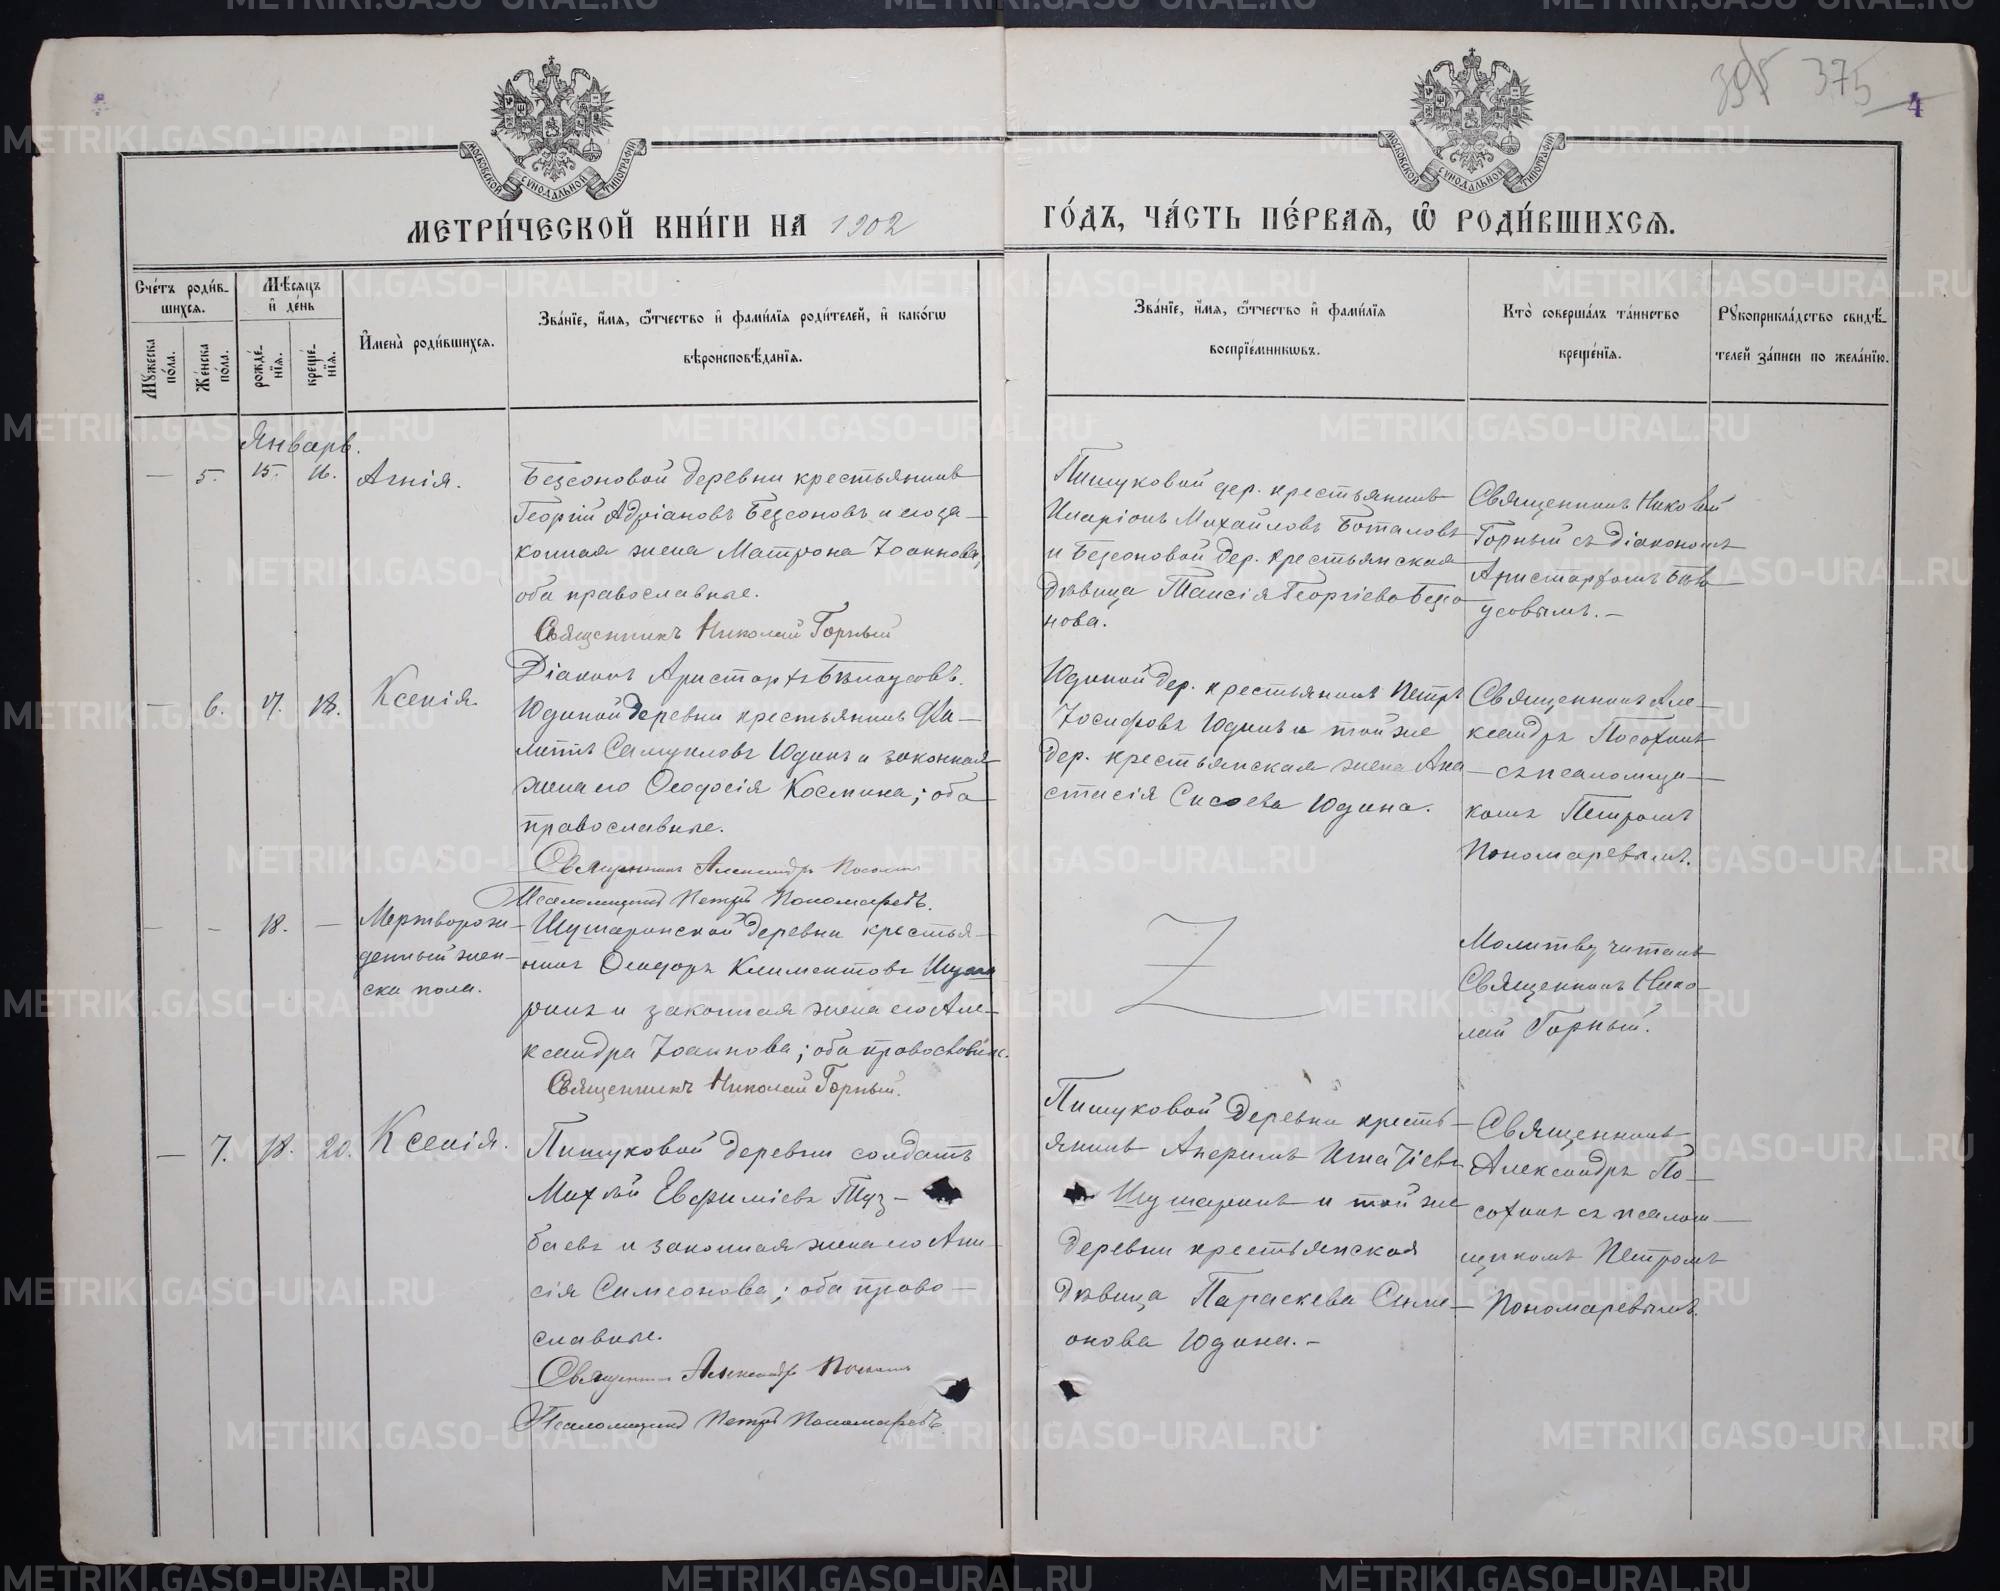 375 4
МОСКОВСКОЙ СУНОДАЛЬНОЙ ТИПОГРАФІИ
МОСКОВСКОЙ СУНОДАЛЬНОЙ ТИПОГРАФІИ
МЕТРИ́ЧЕСКОЙ КНИ́ГИ НА 1902
ГО́ДЪ, ЧА́СТЬ ПЕ́РВАѦ, Ѽ РОДИ́ВШИХСѦ.
Сче́тъ роди́в-
шихсѧ.
Мꙋжеска по́ла.
Же́нска по́ла.
Мѣ́сѧцъ
и҆ де́нь
рожде́-
нїѧ.
креще́-
нїѧ.
И҆мена̀ роди́вшихсѧ.
Зва́нїе, и҆́мѧ, ѻ҆́тчество и҆ фами́лїѧ роди́телей, и҆ како́гѡ
вѣроисповѣ́данїѧ.
Зва́нїе, и҆́мѧ, ѻ҆́тчество и҆ фами́лїѧ
воспрїе́мникѡвъ.
Кто̀ соверша́лъ та́инство
креще́нїѧ.
Рꙋкоприкла́дство свидѣ́-
телей за́писи по жела́нїю.
Январь.
— 5. 15. 16. Агнія.
Безсоновой деревни крестьянинъ
Георгій Адріановъ Безсоновъ и его за-
конная жена Матрона Іоаннова;
оба православные.
Священникъ Николай Горный
Діаконъ Аристархъ Бѣлоусовъ.
Пишуковой дер. крестьянинъ
Иларіонъ Михайловъ Боталовъ
и Безсоновой дер. крестьянская
дѣвица Таисія Георгіева Безсо-
нова.
Священникъ Николай
Горный съ діакономъ
Аристархомъ Бѣло-
усовымъ.-
— 6. 17. 18. Ксенія.
Юдиной деревни крестьянинъ Фи-
липпъ Самуиловъ Юдинъ и законная
жена его Ѳеодосія Космина; оба
православные.
Священникъ Александръ Посохинъ
Псаломщикъ Петръ Пономаревъ.
Юдиной дер. крестьянинъ Петръ
Іосифовъ Юдинъ и той же
дер. крестьянская жена Ана-
стасія Сисоева Юдина.
Священникъ Але-
ксандръ Посохинъ
съ псаломщи-
комъ Петромъ
Пономаревымъ.
— – 18. — Мертворож-
денный жен-
ска пола.
Шушаринской деревни крестья-
нинъ Ѳеодоръ Климентовъ Шуша
ринъ и законная жена его Але-
ксандра Іоаннова; оба православные.
Священникъ Николай Горный.
Молитву читалъ
Священникъ Нико-
лай Горный.
— 7. 18. 20. Ксенія.
Пишуковой деревни солдатъ
Евфиміевъ Туз-
баевъ и законная жена его Ани-
сія Симеонова; оба право-
славные.
Священникъ Александръ Посохинъ
Псаломщикъ Петръ Пономаревъ.
Пишуковой деревни кресть-
янинъ Игнатіевъ
Шушаринъ и той же
деревни крестьянская
дѣвица Параскева Симе-
онова Юдина.-
Священникъ
Александръ По-
сохинъ съ псалом-
щикомъ Петромъ
Пономаревымъ.
METRIKI.GASO-URAL.RU